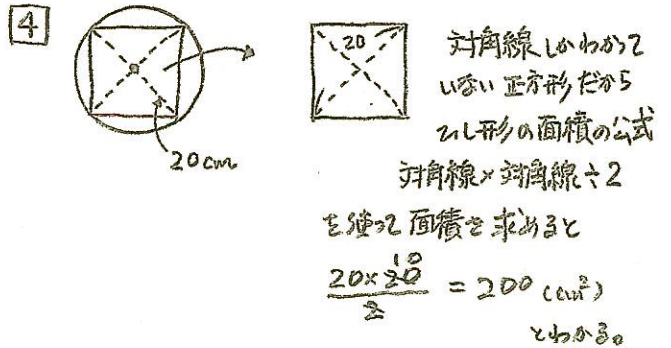 4
20cm
20
対角線しかわかって
いない正方形だから
ひし形の面積の公式
対角線×対角線÷2
を使って面積を求めると
10
20×20
―――― = 200 (cm²)
2
とわかる。